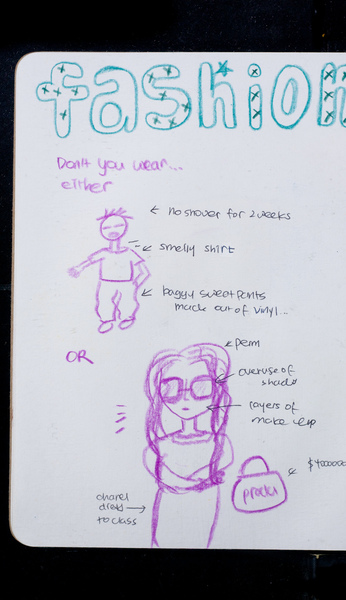 fashion
Don't you wear...
either
no shower for 2 weeks
smelly shirt
baggy sweatpants
made out of vinyl...
OR
perm
overuse of
shades
layers of
make up
$400000
chanel
dress
to class
prada